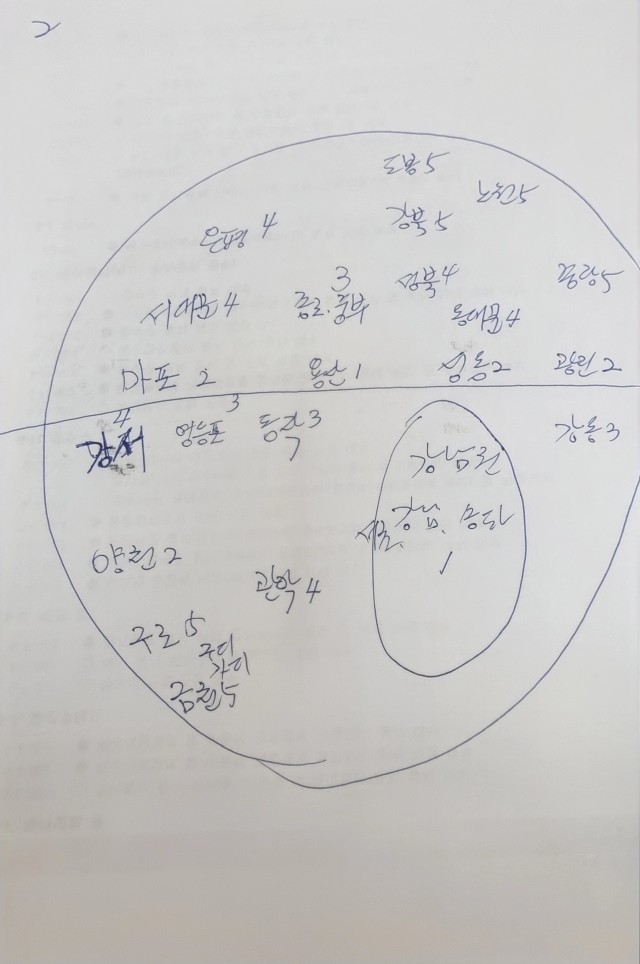 2
도봉 5
노원 5
은평 4
강북 5
3
성북 4
중랑 5
서대문 4
종로. 중부
동대문 4
마포 2
용산 1
성동 2
광진 2
4
강서
영등포 3
동작 3
강동 3
강남권
서초. 강남. 송파
1
양천 2
관악 4
구로 5
구디
가디
금천 5